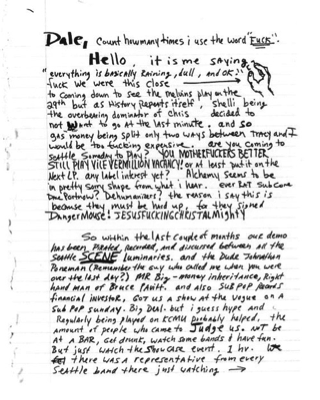 Dale, Count how many times i use the word "Fuck".
Hello, it is me saying
"everything is basically Raining, dull, and OK".
fuck we were this close
to coming to see the melvins play on the
29th but as History Repeats itself, shelli being
the overbearing dominator of chris decided to
not want to go at the last minute. and so
gas money being split only two ways between TRACY and I
would be too fucking expensive. are you coming to
Seattle Someday to Play? YOU MOTHERFUCKERS BETTER
STILL PLAY VILE VERMILLION VACANCY! or at least put it on the
Next LP. any label interest yet? Alchemy seems to be
in pretty sorry shape from what i hear. ever EAT Sub Core
Down Portnow? Dehumanizer? the reason i say this is
because they must be hard up, for they signed
Danger Mouse! JESUSFUCKINGCHRISTALMIGHTY
So within the last couple of months our demo
has been PIRATED, Recorded, and discussed between all the
Seattle SCENE luminaries. and the Dude Johnathan
Poneman (Remember the guy who called me when you were
over the last day?) MR Big-money inheritance, Right
hand man of Bruce Pavitt. and also SUB POP Records
financial investor, GOT us a show at the Vogue on A
Sub POP Sunday. Big Deal. but i guess hype and
Regularly being played on KCMU probably helped, the
amount of people who came to Judge us. NOT be
at A BAR, Get drunk, watch some bands & have fun.
But just watch the Showcase event. 1 hr. We
felt there was a representative from every
Seattle band there just watching →